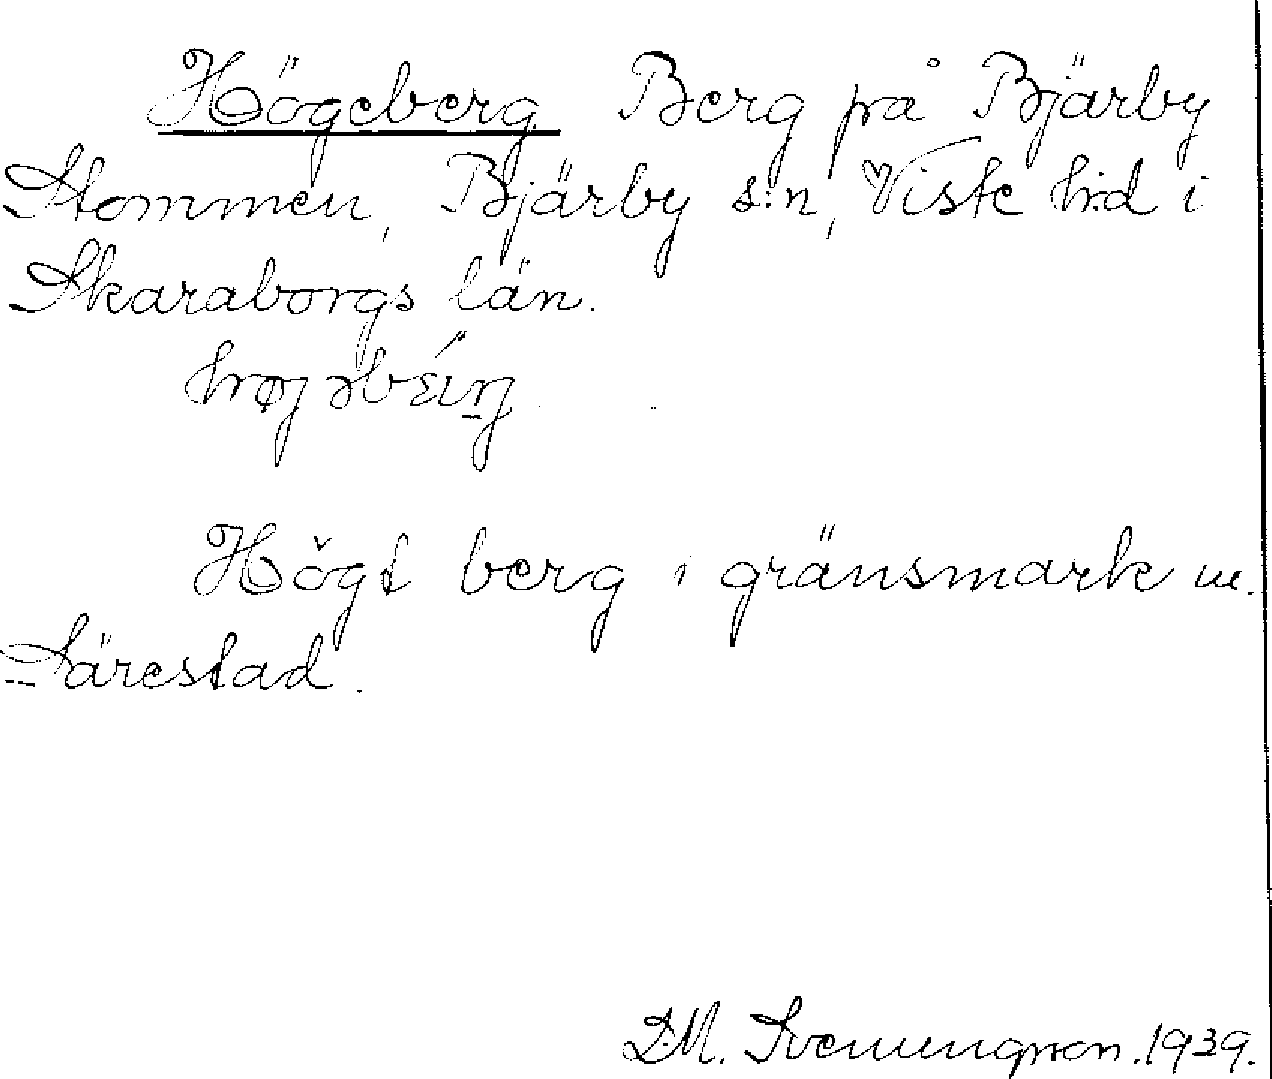 Högeberg Berg på Bjärby
Stommen, Bjärby s:n, Viste h:d i
Skaraborgs län.
Högt berg i gränsmark m.
Särestad.
D.M. Svenungsson. 1939.